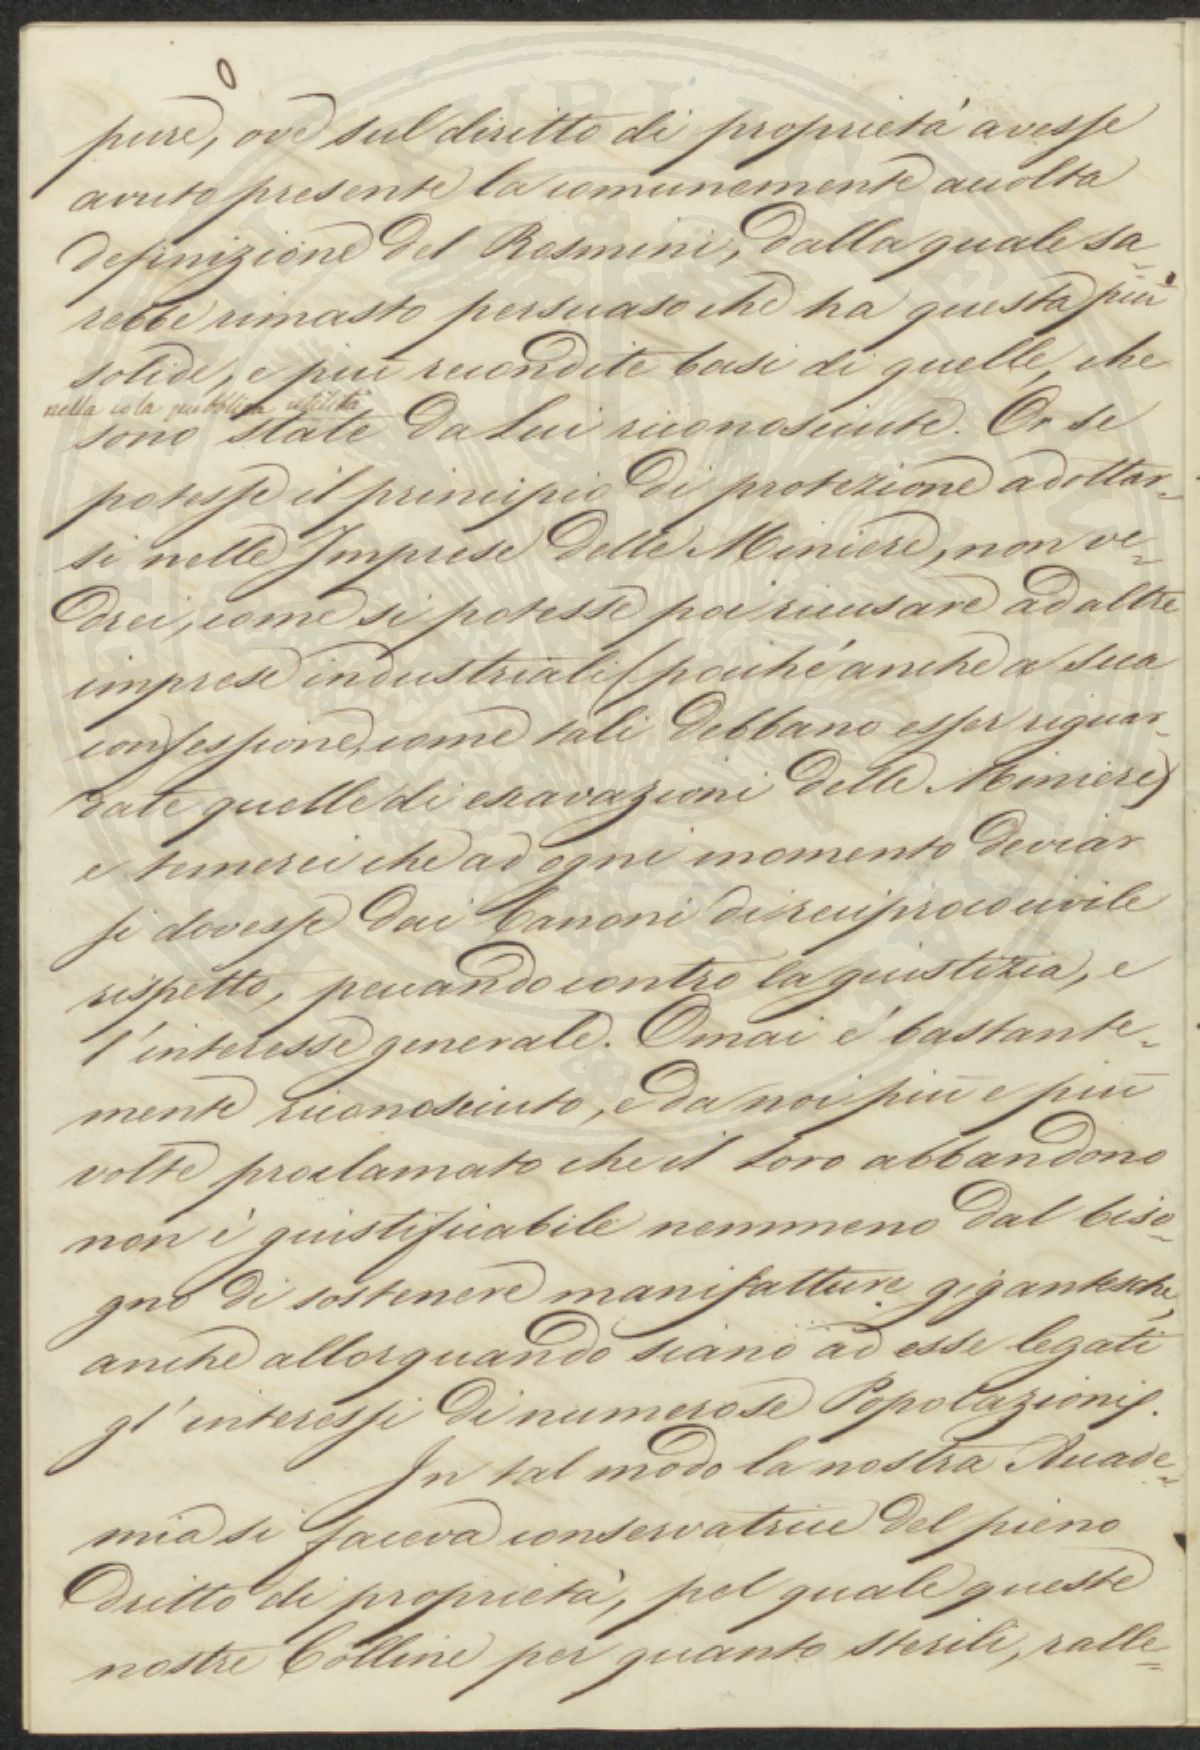 pure, ove sul diritto di proprietá avesse
avuto presente la comunemente accolta
definizione del Rosmini, dalla quale sa-
rebbe rimasto persuaso che ha questa più
solide, e più recondite basi di quelle, che
nella sola pubblica utilità
sono state da Lui riconosciute. Or se
potesse il principio di protezione adottar-
si nelle Imprese delle Miniere, non ve-
drei, come si potesse poi ricusare ad altre
imprese industriali (poiché anche a sua
confessione, come tali debbano esser riguar-
date quelle di escavazioni delle Miniere)
e temerei che ad ogni momento deviar
si dovesse dai Canoni di reciproco civile
rispetto, peccando contro la giustizia, e
l'interesse generale. Omai é bastante-
mente riconosciuto, e da noi più e più
volte proclamato che il loro abbandono
non è giustificabile nemmeno dal biso-
gno di sostenere manifatture gigantesche,
anche allorquando siano ad esse legati
gl'interessi di numerose Popolazioni.
In tal modo la nostra Accade-
mia si faceva conservatrice del pieno
dritto di proprietà, pel quale queste
nostre Colline per quanto sterili, ralle-